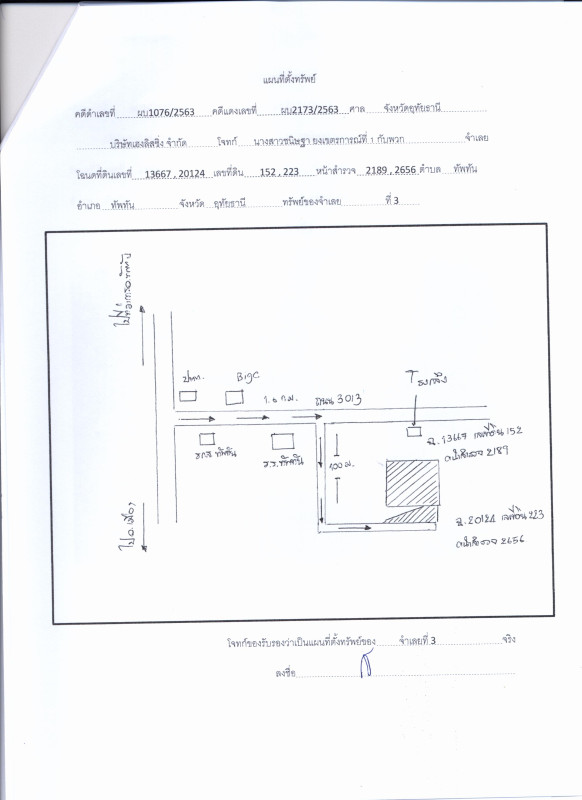 แผนที่ตั้งทรัพย์
คดีดำเลขที่ ผบ1076/2563 คดีแดงเลขที่ ผบ2173/2563 ศาล จังหวัดอุทัยธานี
บริษัทเฮงลิสซิ่ง จำกัด โจทก์ นางสาวชนิษฐา ยงเขตรการณ์ที่ 1 กับพวก จำเลย
โฉนดที่ดินเลขที่ 13667 , 20124 เลขที่ดิน 152 , 223 หน้าสำรวจ 2189 , 2656 ตำบล ทัพทัน
อำเภอ ทัพทัน จังหวัด อุทัยธานี ทรัพย์ของจำเลย ที่ 3
BigC
1.0 ก.ม. ถนน 3013
ธกส ทัพทัน
ร.ร.ทัพทัน
100 ม.
โรงกลึง
ฉ. 13667 เลขที่ดิน 152
หน้าสำรวจ 2189
ฉ. 20124 เลขที่ดิน 223
หน้าสำรวจ 2656
ไป อ.เมือง
โจทก์ของรับรองว่าเป็นแผนที่ตั้งทรัพย์ของ จำเลยที่ 3 จริง
ลงชื่อ